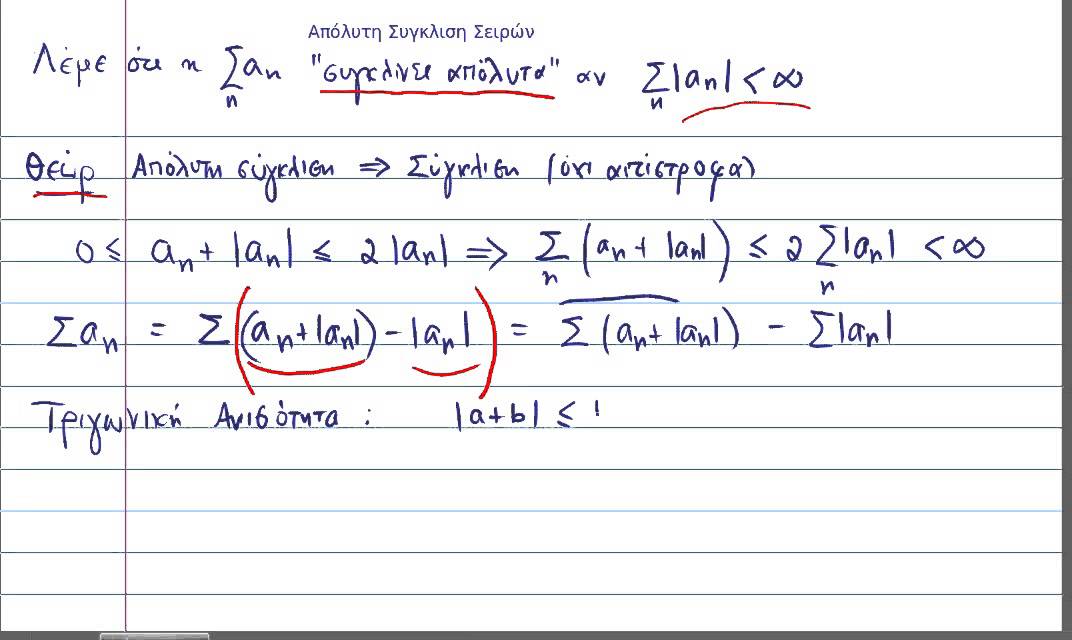 Απόλυτη Συγκλιση Σειρών
Λέμε ότι η Σ_n a_n "συγκλίνει απόλυτα" αν Σ_n |a_n| < ∞
Θεώρ Απόλυτη σύγκλιση ⇒ Σύγκλιση (όχι αντίστροφα)
0 ≤ a_n + |a_n| ≤ 2 |a_n| ⇒ Σ_n (a_n + |a_n|) ≤ 2 Σ_n |a_n| < ∞
Σ a_n = Σ ((a_n + |a_n|) - |a_n|) = Σ (a_n + |a_n|) - Σ |a_n|
Τριγωνική Ανισότητα : |a+b| ≤ '